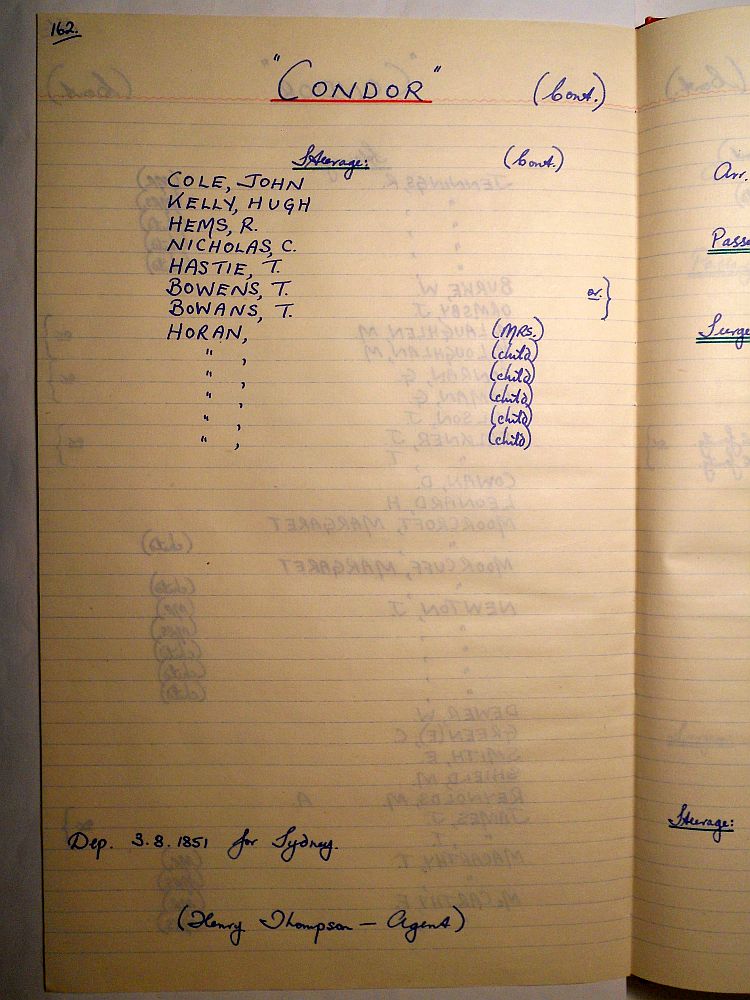 162.
"CONDOR" (Cont.)
Steerage: (Cont.)
COLE, JOHN
KELLY, HUGH
HEMS, R.
NICHOLAS, C.
HASTIE, T.
BOWENS, T. or }
BOWANS, T.
HORAN, (MRS.)
" , (child)
" , (child)
" , (child)
" , (child)
" , (child)
Dep. 3.8.1851 for Sydney.
(Henry Thompson — Agent)
Arr.
Steerage: